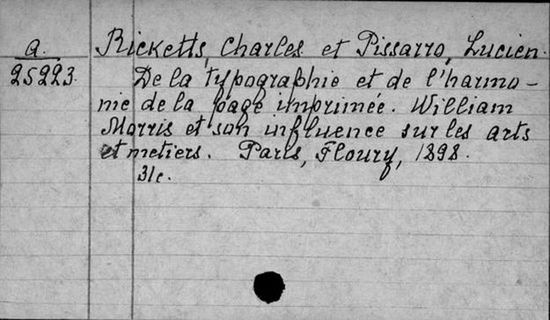 a. Ricketts, Charles et Pissarro, Lucien.
25223. De la typographie et de l'harmo-
nie de la page imprimée. William
Morris et son influence sur les arts
et metiers. Paris, Floury, 1898.
31c.